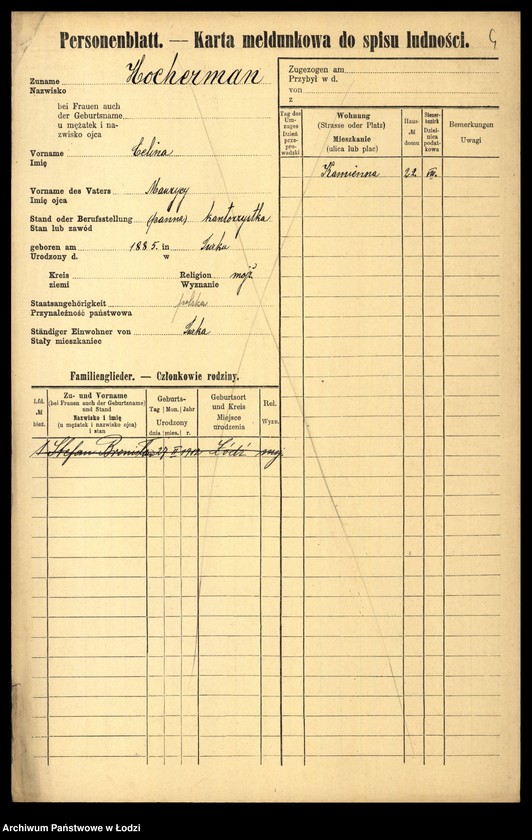 Personenblatt. — Karta meldunkowa do spisu ludności.
Zuname Hocherman
Nazwisko
bei Frauen auch
der Geburtsname
u mężatek i na-
zwisko ojca
Vorname Celina
Imię
Vorname des Vaters Maurycy
Imię ojca
Stand oder Berufsstellung (panna) kantorzystka
Stan lub zawód
geboren am 1885. in
Urodzony d. w
Kreis Religion mojż.
ziemi Wyznanie
Staatsangehörigkeit polska
Przynależność państwowa
Ständiger Einwohner von
Stały mieszkaniec
Familienglieder. — Członkowie rodziny.
Lfd. № bież.
Zu- und Vorname
(bei Frauen auch der Geburtsname)
und Stand
Nazwisko i imię
(u mężatek i nazwisko ojca)
i stan
Geburts-
Tag Mon. Jahr
Urodzony
dnia mies. r.
Geburtsort
und Kreis
Miejsce
urodzenia
Rel.
Wyzn.
1 Stefan 27 Łódź
Zugezogen am
Przybył w d.
von
z
Tag des Um-
zuges
Dzień
prze-
pro-
wadzki
Wohnung
(Strasse oder Platz)
Mieszkanie
(ulica lub plac)
Haus-
№
domu
Steuer-
bezirk
Dziel-
nica
podat-
kowa
Bemerkungen
Uwagi
Kamienna 22 VII.
Archiwum Państwowe w Łodzi